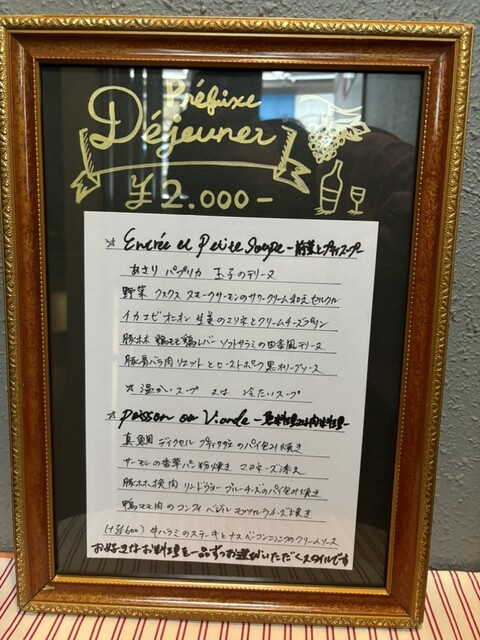 Préfixe
Déjeuner
¥2.000-
☆ Entrée et Petite Soupe -前菜とプティスープ-
あさり パプリカ 玉子のテリーヌ
野菜 クスクス スモークサーモンのサワークリーム和え セルクル
イカ エビ オニオン 生姜のマリネとクリームチーズ
豚ホホ 鴨モモ 鶏レバー ソフトサラミの田舎風テリーヌ
豚肩バラ肉 リエットとローストポーク 黒オリーブソース
☆温かいスープ 又は 冷たいスープ
☆ Poisson ou Viande -魚料理又は肉料理-
真鯛 デュクセル ブティックサラのパイ包み焼き
サーモンの香草パン粉焼き マヨネーズ添え
豚ホホ挽肉 リードヴォー ブルーチーズのパイ包み焼き
鴨モモ肉のコンフィ バジル モッツァレラチーズ焼き
(+¥600) 牛ハラミのステーキとナス ベーコン ニンニクのクリームソース
お好きなお料理を一品ずつお選びいただくスタイルです